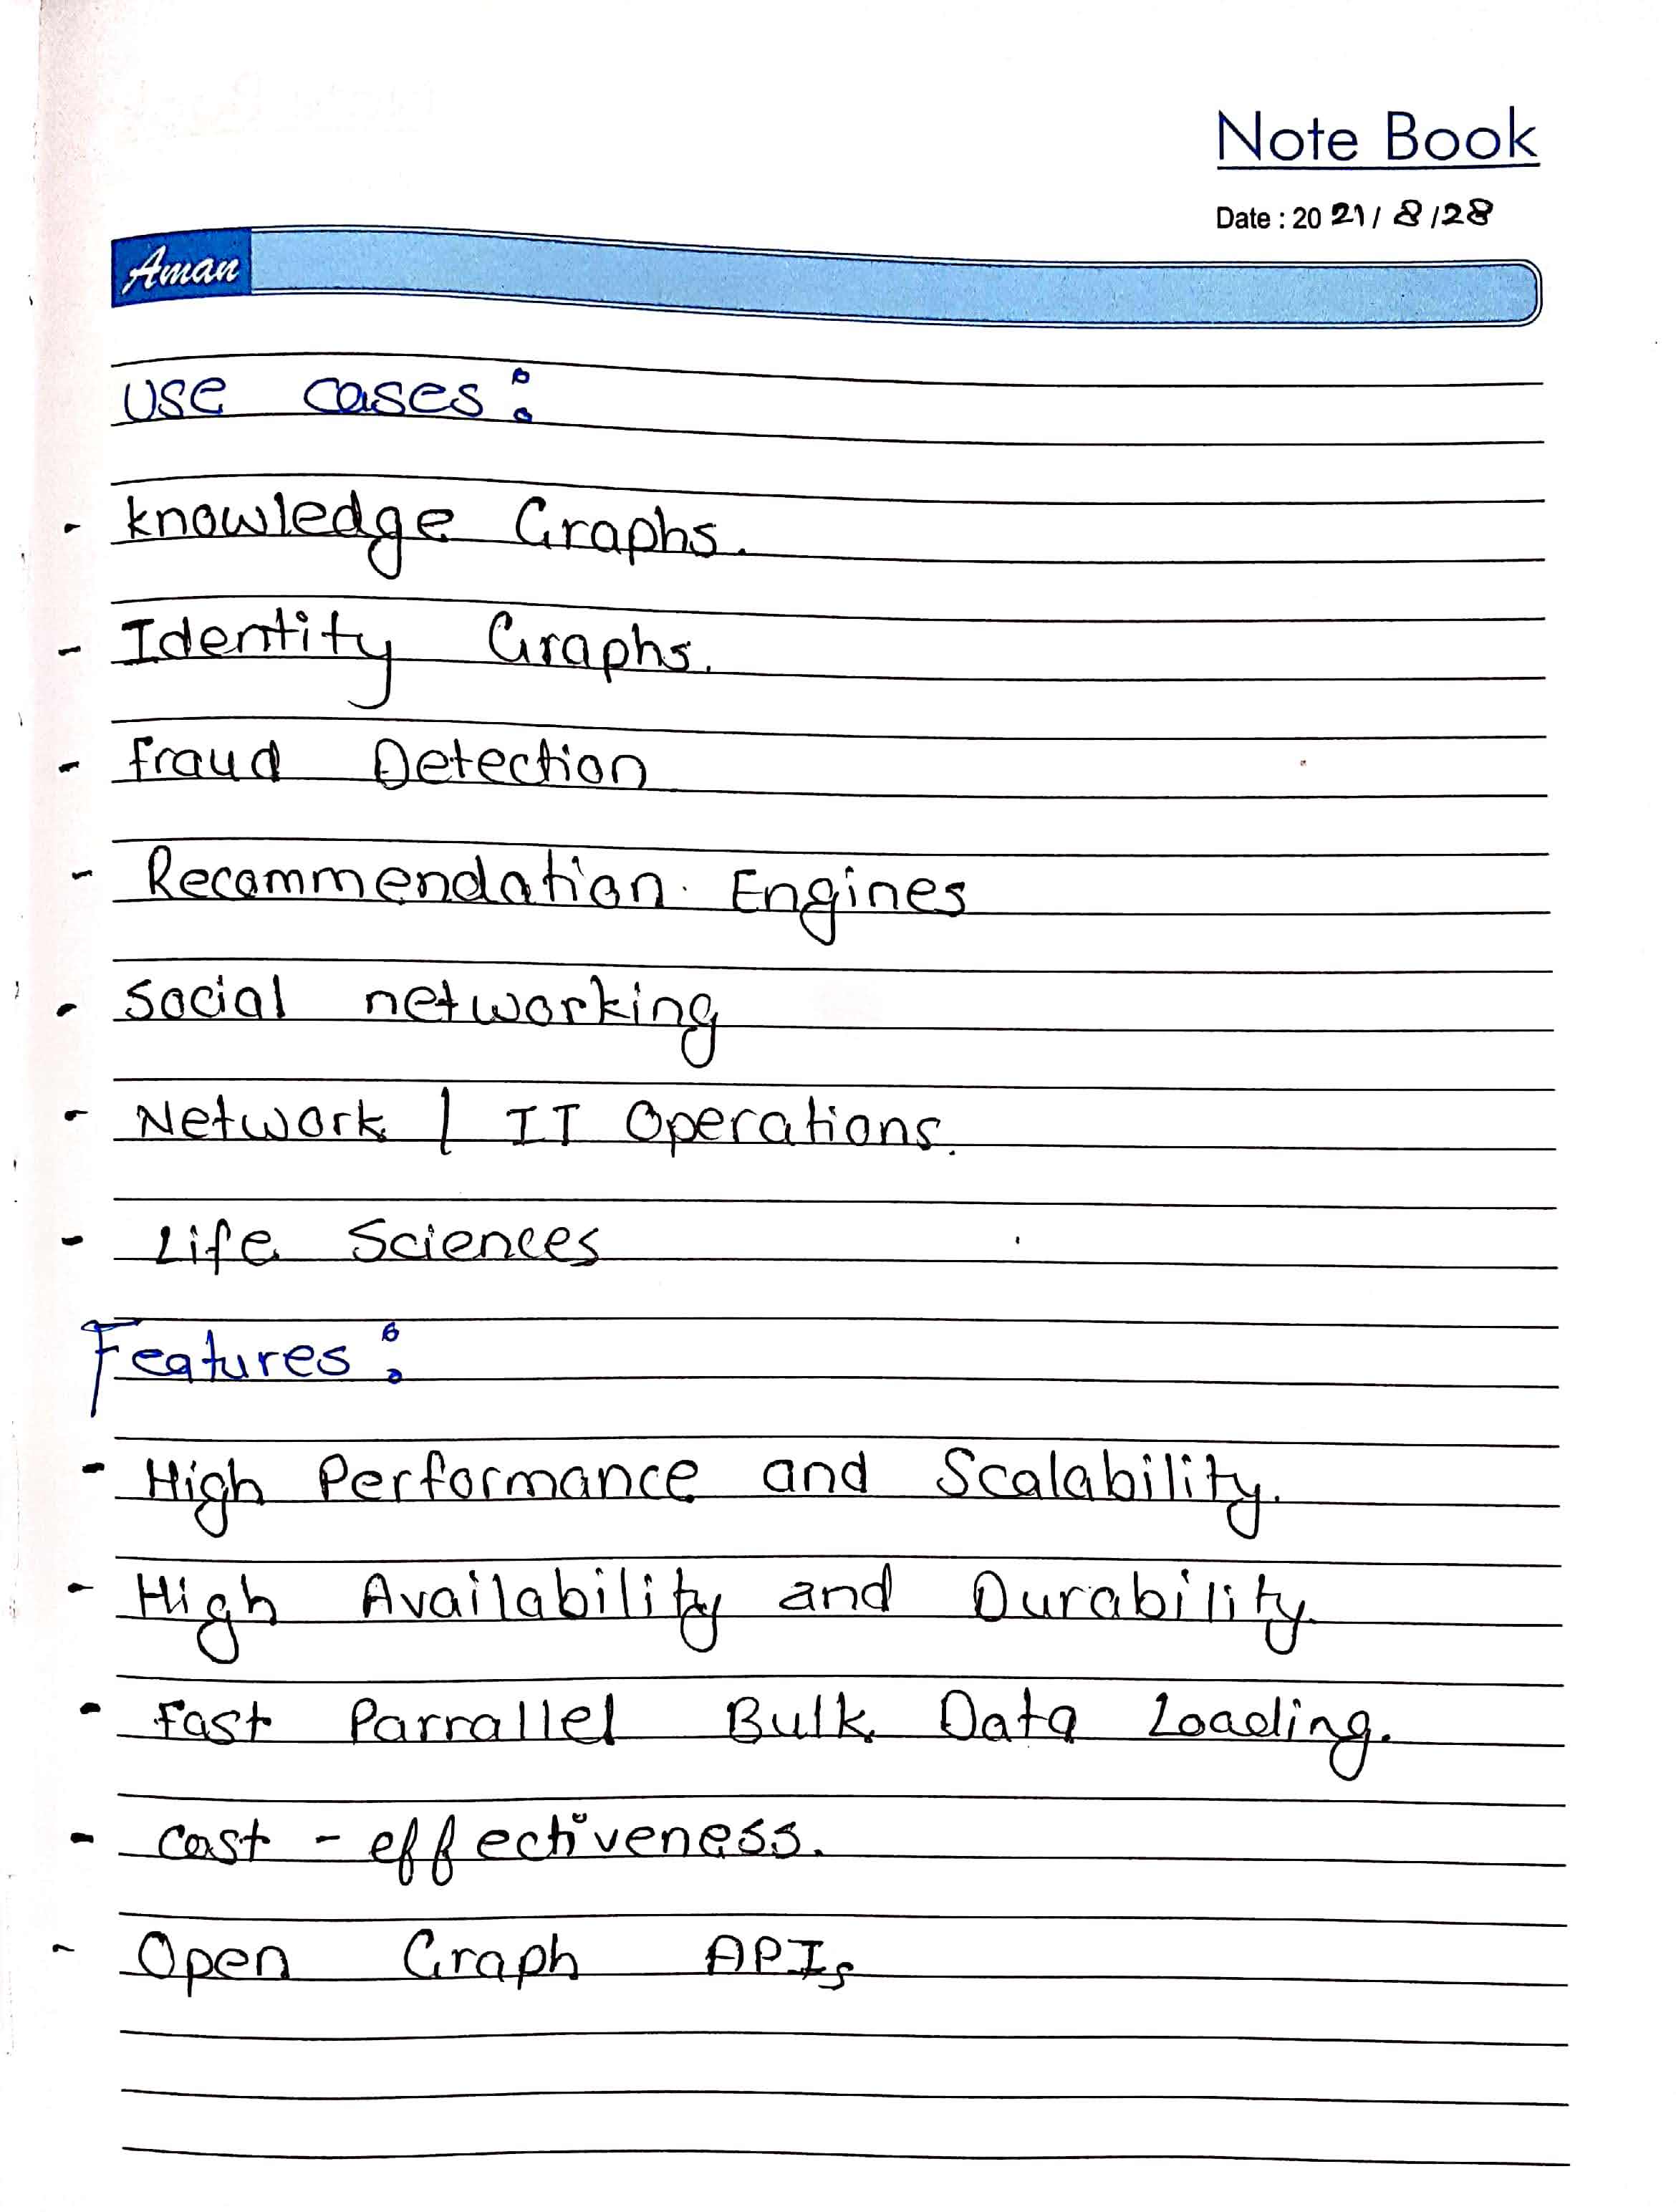 Note Book
Date : 20 21 / 8 / 28
Aman
Use cases :
- knowledge Graphs.
- Identity Graphs.
- fraud Detection
- Recommendation. Engines
- social networking
- Network / IT Operations.
- Life Sciences
Features :
- High Performance and Scalability.
- High Availability and Durability.
- Fast Parrallel Bulk Data Loading.
- cost - effectiveness.
- Open Graph APIs